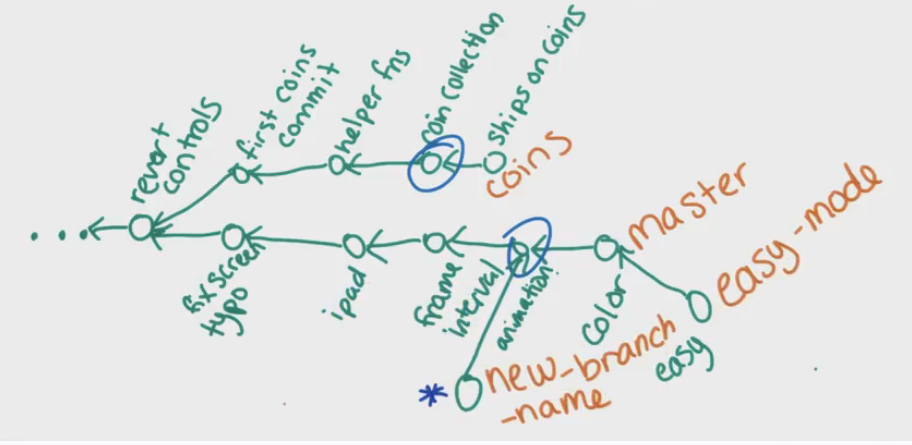 revert
controls
first coins
commit
helper fns
coin collection
ships on coins
coins
fix screen
typo
ipad
frame
interval
animation
color
master
easy
easy-mode
* new_branch
-name